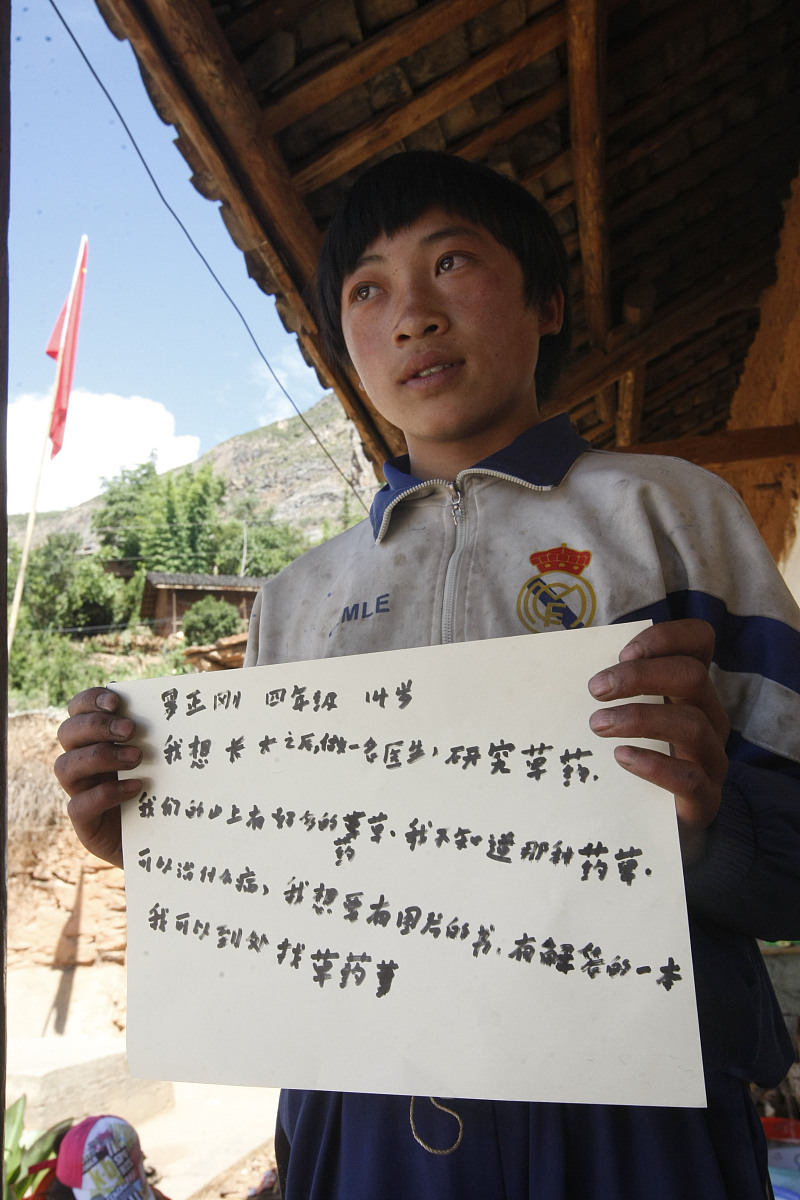 MLE
罗正刚 四年级 14岁
我想长大之后,做一名医生,研究草药.
我们的山上有好多的草草.我不知道那种药草.
药
可以治什么病,我想要有图片的书.有解答的一本
我可以到处找草药